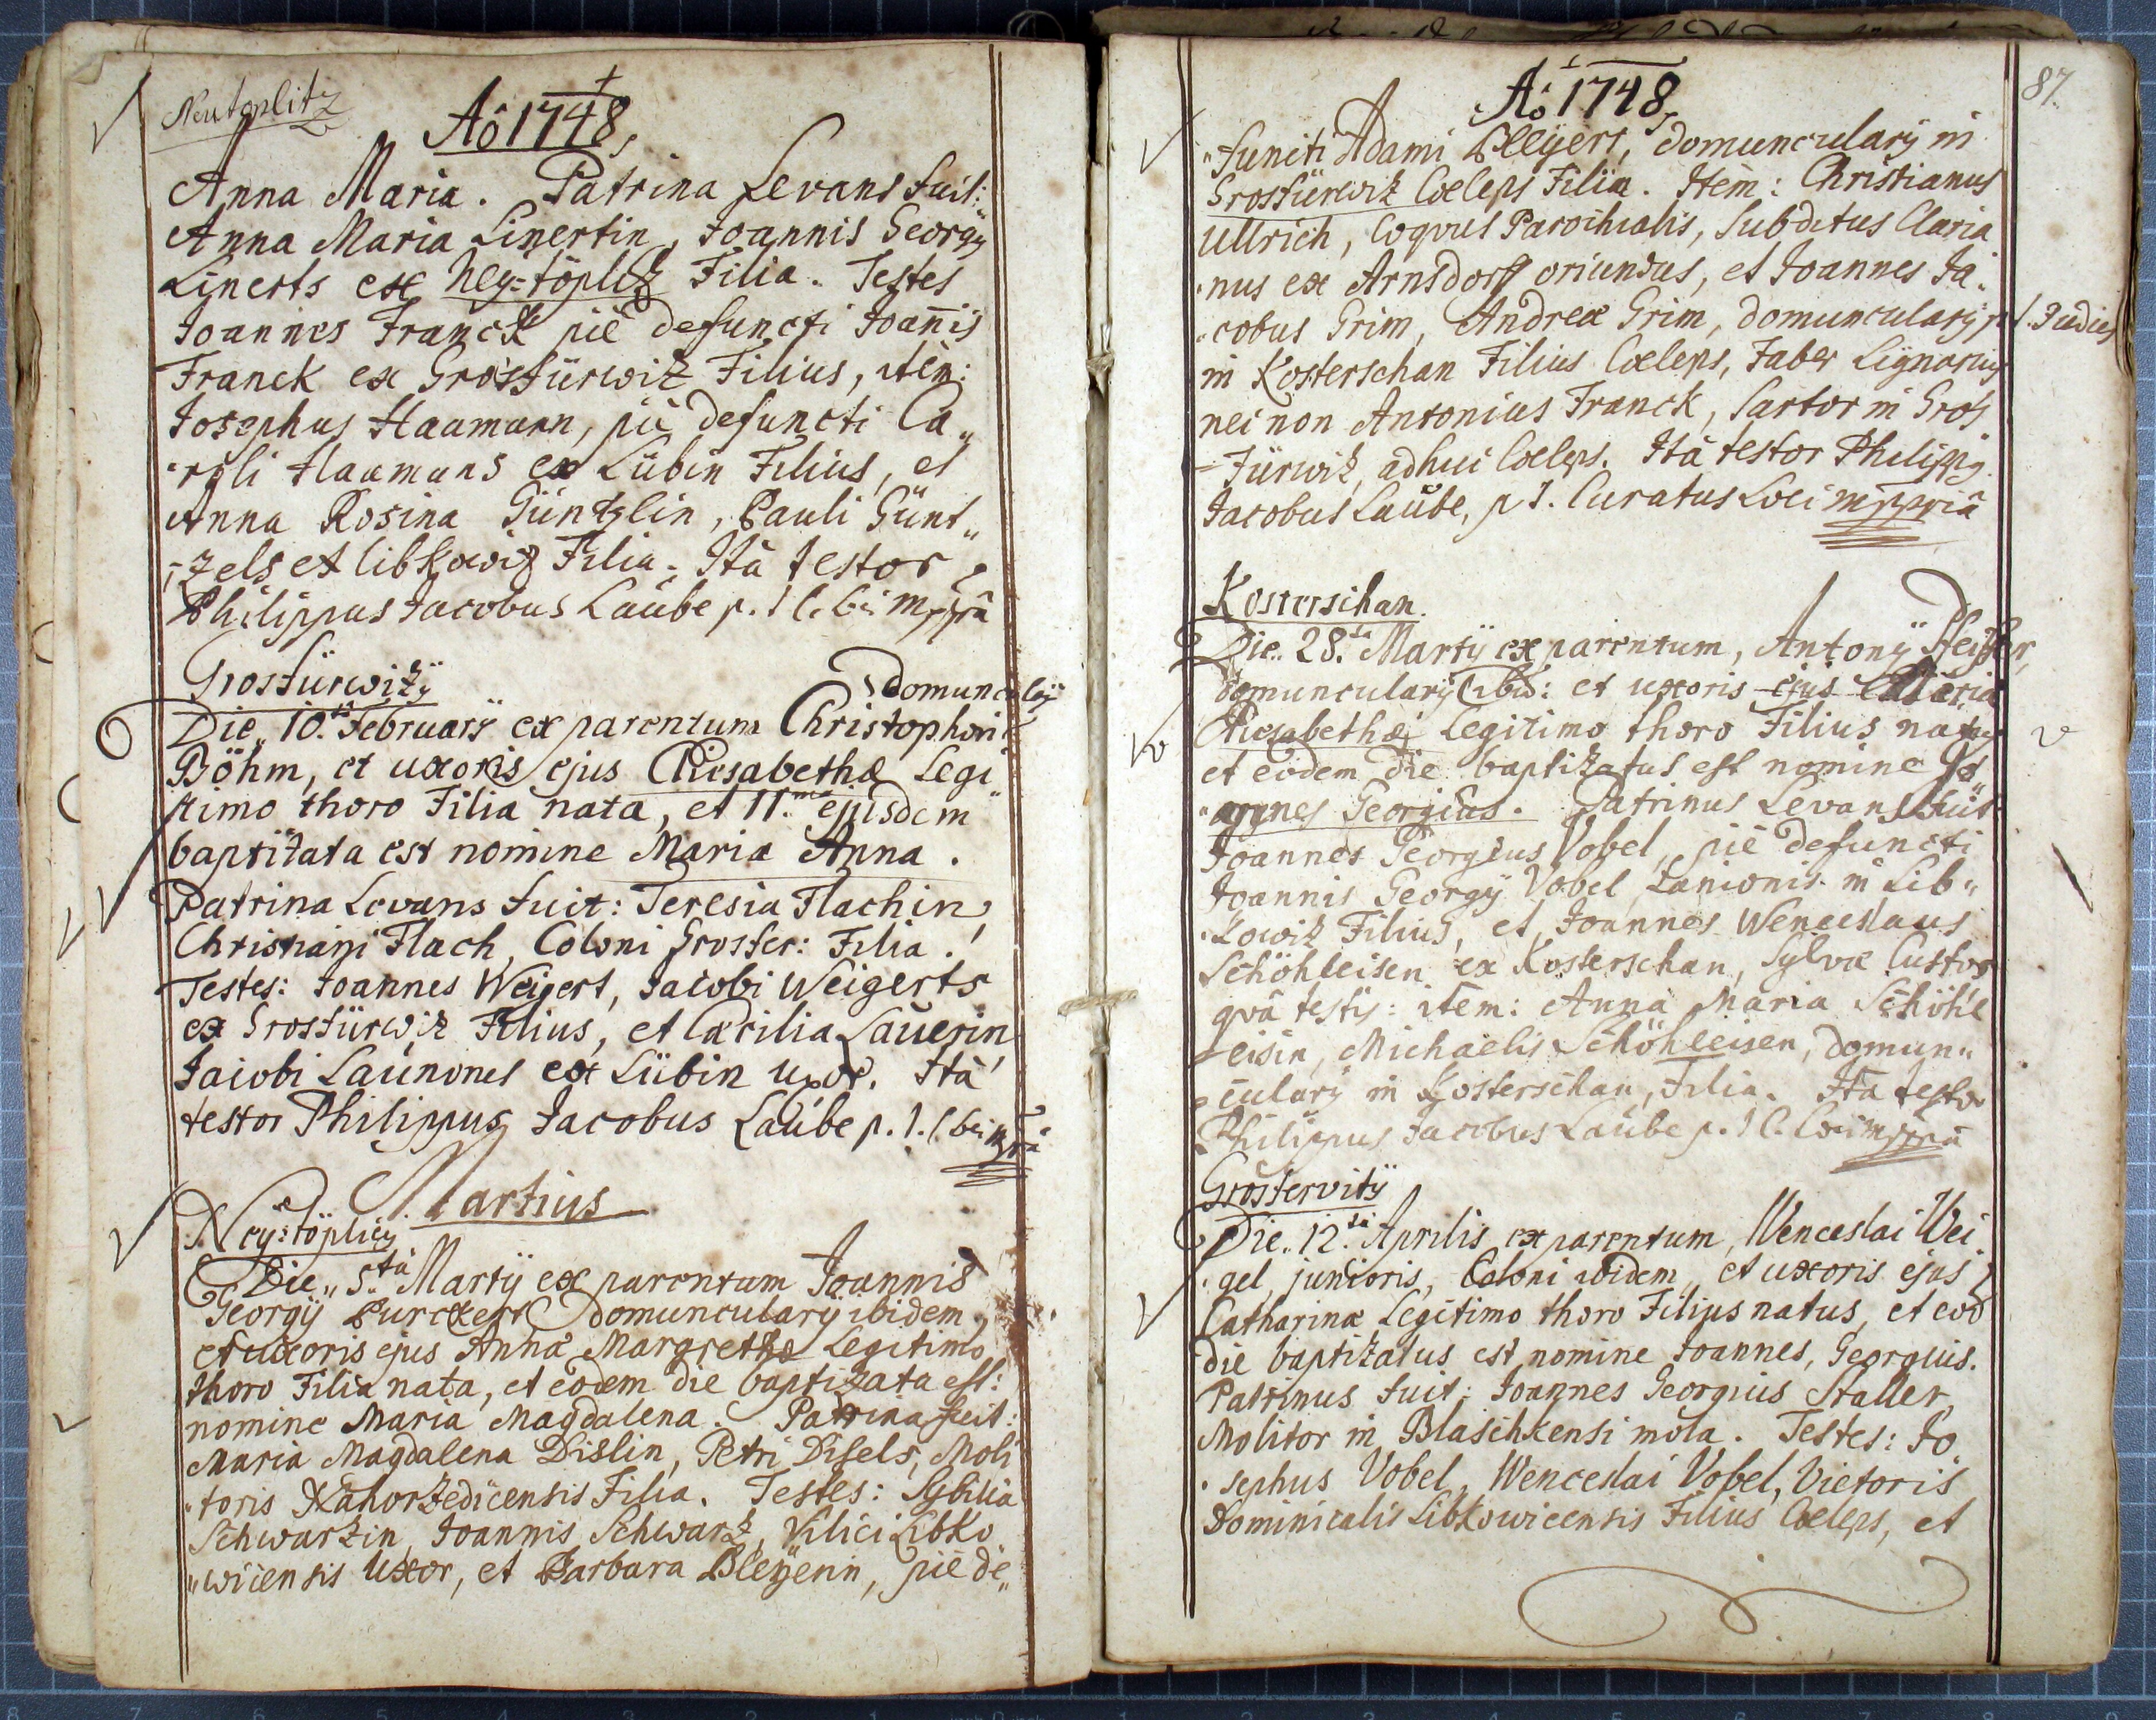 Neutoplitz
Aô 1748,
Anna Maria. Patrina Levans fuit:
Anna Maria Linertin, Joannis Georgÿ
Linerts ex Neÿ=töplitz Filia. Testes
Joannes Franck piè defuncti Joanis
Franck ex Grosfürwiz Filius, item:
Josephus Haamann, piè defuncti Ca„
roli Haamans ex Lübin Filius, et
Anna Rosina Güntzlin, Pauli Günt„
zels ex libkowiz Filia. Ità testor
Philippus Jacobus Laube p. t. C. loci mppria
Grosfürwitz
domunculary
Die 10. Februarÿ ex parentum Christophori
Böhm, et uxoris ejus Elisabethæ Legi„
timo thoro Filia nata, et 11.ma ejusdem
baptizata est nomine Maria Anna.
Patrina Levans fuit: Teresia Flachin,
Christiani Flach, Coloni Grosfer: Filia.
Testes: Joannes Weigert, Jacobi Weigerts
ex Grosfürwiz Filius, et Cæcilia Lauerin
Jacobi ex Lübin uxor. Ità
testor Philippus Jacobus Laube p. t. C. loci mppria
Martius
Neÿ=töplitz
Die„ 5.ta Martÿ ex parentum Joannis
Georgÿ domunculary ibidem,
et uxoris ejus Anna Margretha Legitimo
thoro Filia nata, et eodem die baptizata est:
nomine Maria Magdalena. Patrina fuit:
Maria Magdalena Dislin, Petri Disels, Moli
„toris Filia. Testes: Sybilia
Schwarzin, Joannis Schwarz, Vilici Libko
„wicensis Uxor, et Barbara Bleÿerin, piè de„
87.
Aô 1748,
„functi Adami Bleÿers, domunculary in
Grosfürwiz Cœlebs Filia. Item: Christianus
Ullrich, Coqvus Parochialis, Subditus Claria
nus ex Arnsdorff oriundus, et Joannes Ja„
„cobus Grim, Andreæ Grim, domunculary p. t. Judicis
in Kosterschan Filius Cœleps, Faber Lignarius
nec non Antonius Franck, Sartor in Gros
=Fürwiz, adhuc Cœleps. Ità testor Philippus
Jacobus Laube, p t. Curatus Loci mppria
Kosterschan.
Die„ 28.va Martÿ ex parentum, Antonÿ Pfeiffer,
domunculary ibid: et uxoris ejus Maria
Elisabethæ Legitimo thoro Filius natus
et eodem die baptizatus est nomine Jo
„annes Georgius. Patrinus Levans fuit
Joannes Georgius Vobel, piè defuncti
Joannis Georgÿ Vobel, Lanionis in Lib„
kowiz Filius, et Joannes Wenceslaus
Schöhleisen ex Kosterschan, Sylvæ Custos
qvà testis: item: Anna Maria Schöhl
eisin, Michaelis Schöhleisen, domun„
culary in Kosterschan, Filia. Ità testor
Philippus Jacobus Laube p. t. C. Loci mppria
Grosfervitz
Die„ 12.ma Aprilis ex parentum, Wenceslai Wei
gel, junioris, Coloni ibidem, et uxoris ejus
Catharina Legitimo thoro Filius natus, et eod
die baptizatus est nomine Joannes, Georgius.
Patrinus fuit: Joannes Georgius Staller,
Molitor in Blaschkensi mola. Testes: Jo
sephus Vobel, Wenceslai Vobel, Vietoris
Dominicalis Libkowicensis Filius Cœleps, et